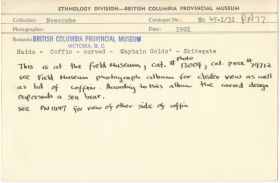 ETHNOLOGY DIVISION—BRITISH COLUMBIA PROVINCIAL MUSEUM
Collection: Newcombe Catalogue No: Ec 45-1/31 PN 77
Photographer: Date: 1901
Remarks BRITISH COLUMBIA PROVINCIAL MUSEUM
VICTORIA, B.C.
Haida - Coffin - carved - 'Captain Golds' - Skidegate
photo
This is at the Field Museum, cat. # 13009, cat. piece # 79712
see Field Museum photograph album for clearer view as well
as lid of coffin. According to this album the carved design
represents a sea bear.
see PN 11197 for view of other side of coffin